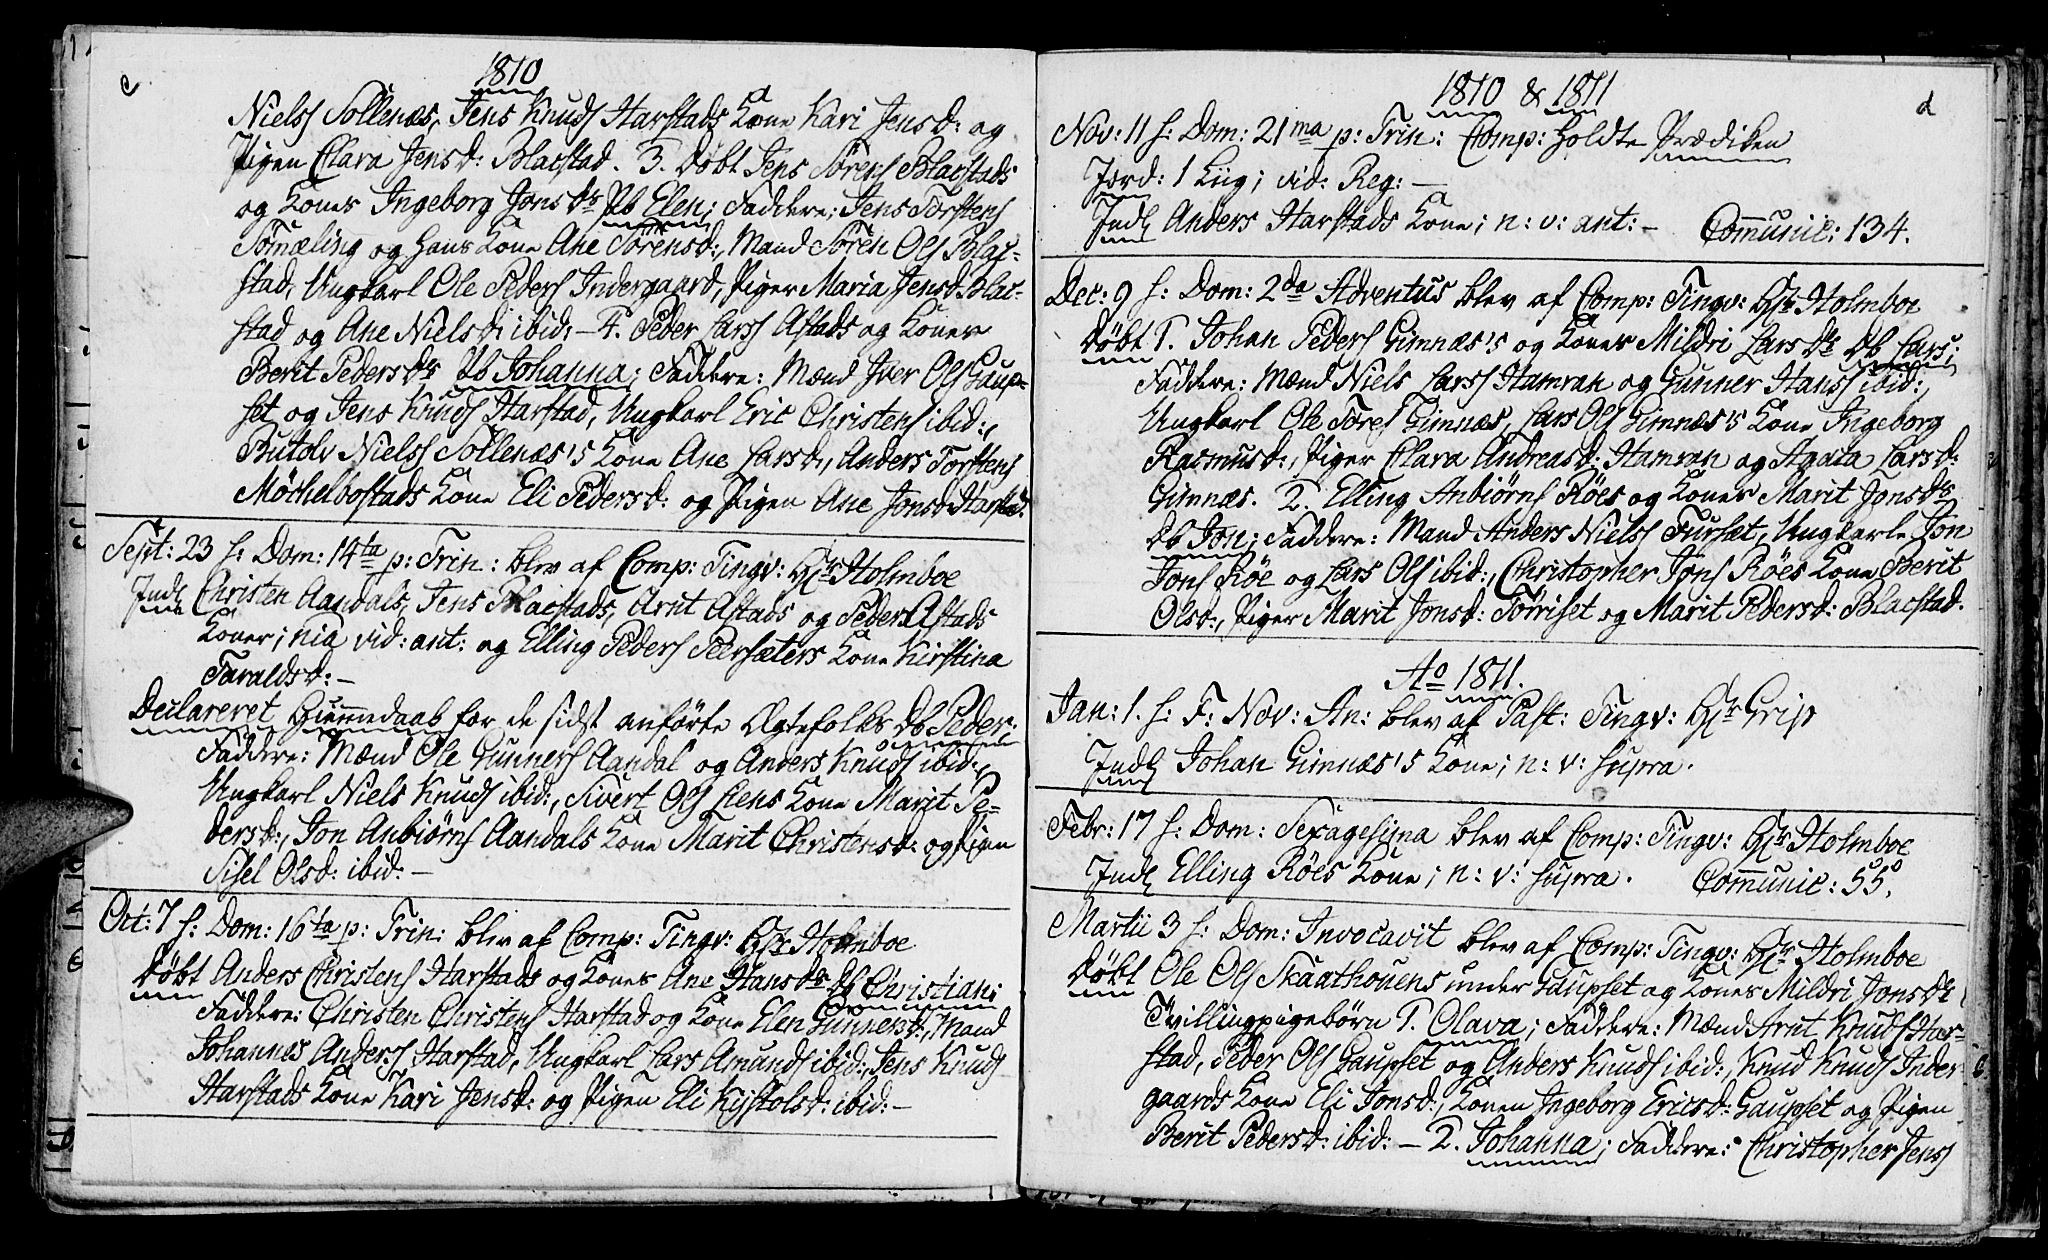 c
1810
Niels§ Sollenæs, Jens Knuds§ Harstads Kone Kari Jensd: og
Pigen Clara Jensd: Blacstad. 3. Døbt Jens Sørens§ Blacstads
og Kones Ingeborg Jonsdr Pb Elen; Faddere: Jens Torstens§
Tømæling og hans Kone Ane Sørensd:, Mand Søren Ols§ Blac-
stad, Ungkarl Ole Peders§ Indergaard, Piger Maria Jensd. Blac-
stad og Ane Nielsd: ibid: – 4. Peder Lars§ Astads og Kones
Berit Pedersdr Pb Johanna; Faddere: Mænd Iver Ols§ Gaup-
set og Jens Knuds§ Harstad, Ungkarl Eric Christens§ ibid:,
Butolv Niels§ Sollenæs's Kone Ane Larsd:, Anders Torstens§
Møchelbostads Kone Eli Pedersd: og Pigen Ane Jonsd: Harstad.
Sept: 23 h: Dom: 14ta p: Trin: blev af Comp: Tingv: Hr Holmboe
Indl Christen Aandals, Jens Blacstads, Arnt Astads og Peder Astads
Koner; nia vid: ant: og Elling Peders§ Peersæters Kone Kirstina
Taraldsd: –
Declareret Hiemmedaab for de sidst anførte Ægtefolks Db Peder;
Faddere: Mænd Ole Gunners§ Aandal og Anders Knuds§ ibid:,
Ungkarl Niels Knuds§ ibid:, Sivert Ols§ Liens Kone Marit Pe-
dersd:, Jon Anbiørns§ Aandals Kone Marit Christensd: og Pigen
Sisel Olsd: ibid: –
Oct: 7 h: Dom: 16ta p: Trin: blev af Comp: Tingv: Hr Holmboe
Døbt Anders Christens§ Harstads og Kones Ane Hansdr Db Christian;
Faddere: Christen Christens§ Harstad og Kone Elen Gunnersd:, Mand
Johannes Anders§ Harstad, Ungkarl Lars Amunds§ ibid:, Jens Knuds§
Harstads Kone Kari Jensd: og Pigen Eli Kystolsd: ibid: –
1810 & 1811
d
Nov: 11 h: Dom: 21ma p: Trin: Comp: holdte Prædiken
Jord: 1 Liig; vid: Reg: –
Indl Anders Harstads Kone; n: v: ant: – Communic: 134.
Dec: 9 h: Dom: 2da Adventus blev af Comp: Tingv: Hr Holmboe
Døbt 1. Johan Peders§ Gimnæs's og Kones Mildri Larsdr Db Lars;
Faddere: Mænd Niels Lars§ Hamran og Gunner Hans§ ibid:,
Ungkarl Ole Tores§ Gimnæs, Lars Ols§ Gimnæs's Kone Ingeborg
Rasmusd:, Piger Clara Andreasd: Hamran og Agata Larsd:
Gimnæs. 2. Elling Anbiørns§ Röes og Kones Marit Jonsdr
Db Jon; Faddere: Mand Anders Niels§ Furset, Ungkarle Jon
Jons§ Röe og Lars Ols§ ibid:, Christopher Jons§ Röes Kone Berit
Olsd:, Piger Marit Jonsd: Tørriset og Marit Pedersd: Blacstad.
Ao 1811.
Jan: 1. h: F: Nov: An: blev af Past: Tingv: Hr Grip
Indl Johan Gimnæs's Kone; n: v: supra.
Febr: 17 h: Dom: Sexagesima blev af Comp: Tingv: Hr Holmboe
Indl Elling Röes Kone; n: v: supra. Communic: 55.
Martii 3 h: Dom: Invocavit blev af Comp: Tingv: Hr Holmboe
Døbt Ole Ols§ Skaathouens under Gaupset og Kones Mildri Jonsdr
Tvillingpigebørn 1. Olava; Faddere: Mænd Arnt Knuds§ Har-
stad, Peder Ols§ Gaupset og Anders Knuds§ ibid:, Knud Knuds§ Inder-
gaards Kone Eli Jonsd:, Konen Ingeborg Ericsd: Gaupset og Pigen
Berit Pedersd: ibid: – 2. Johanna; Faddere: Christopher Jens§